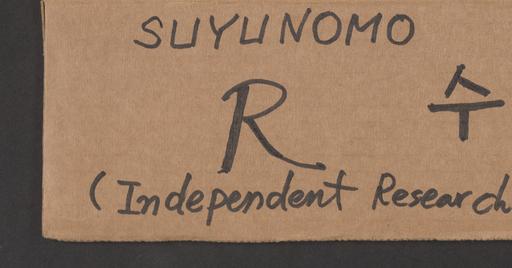 SUYUNOMO
R 수
(Independent Research